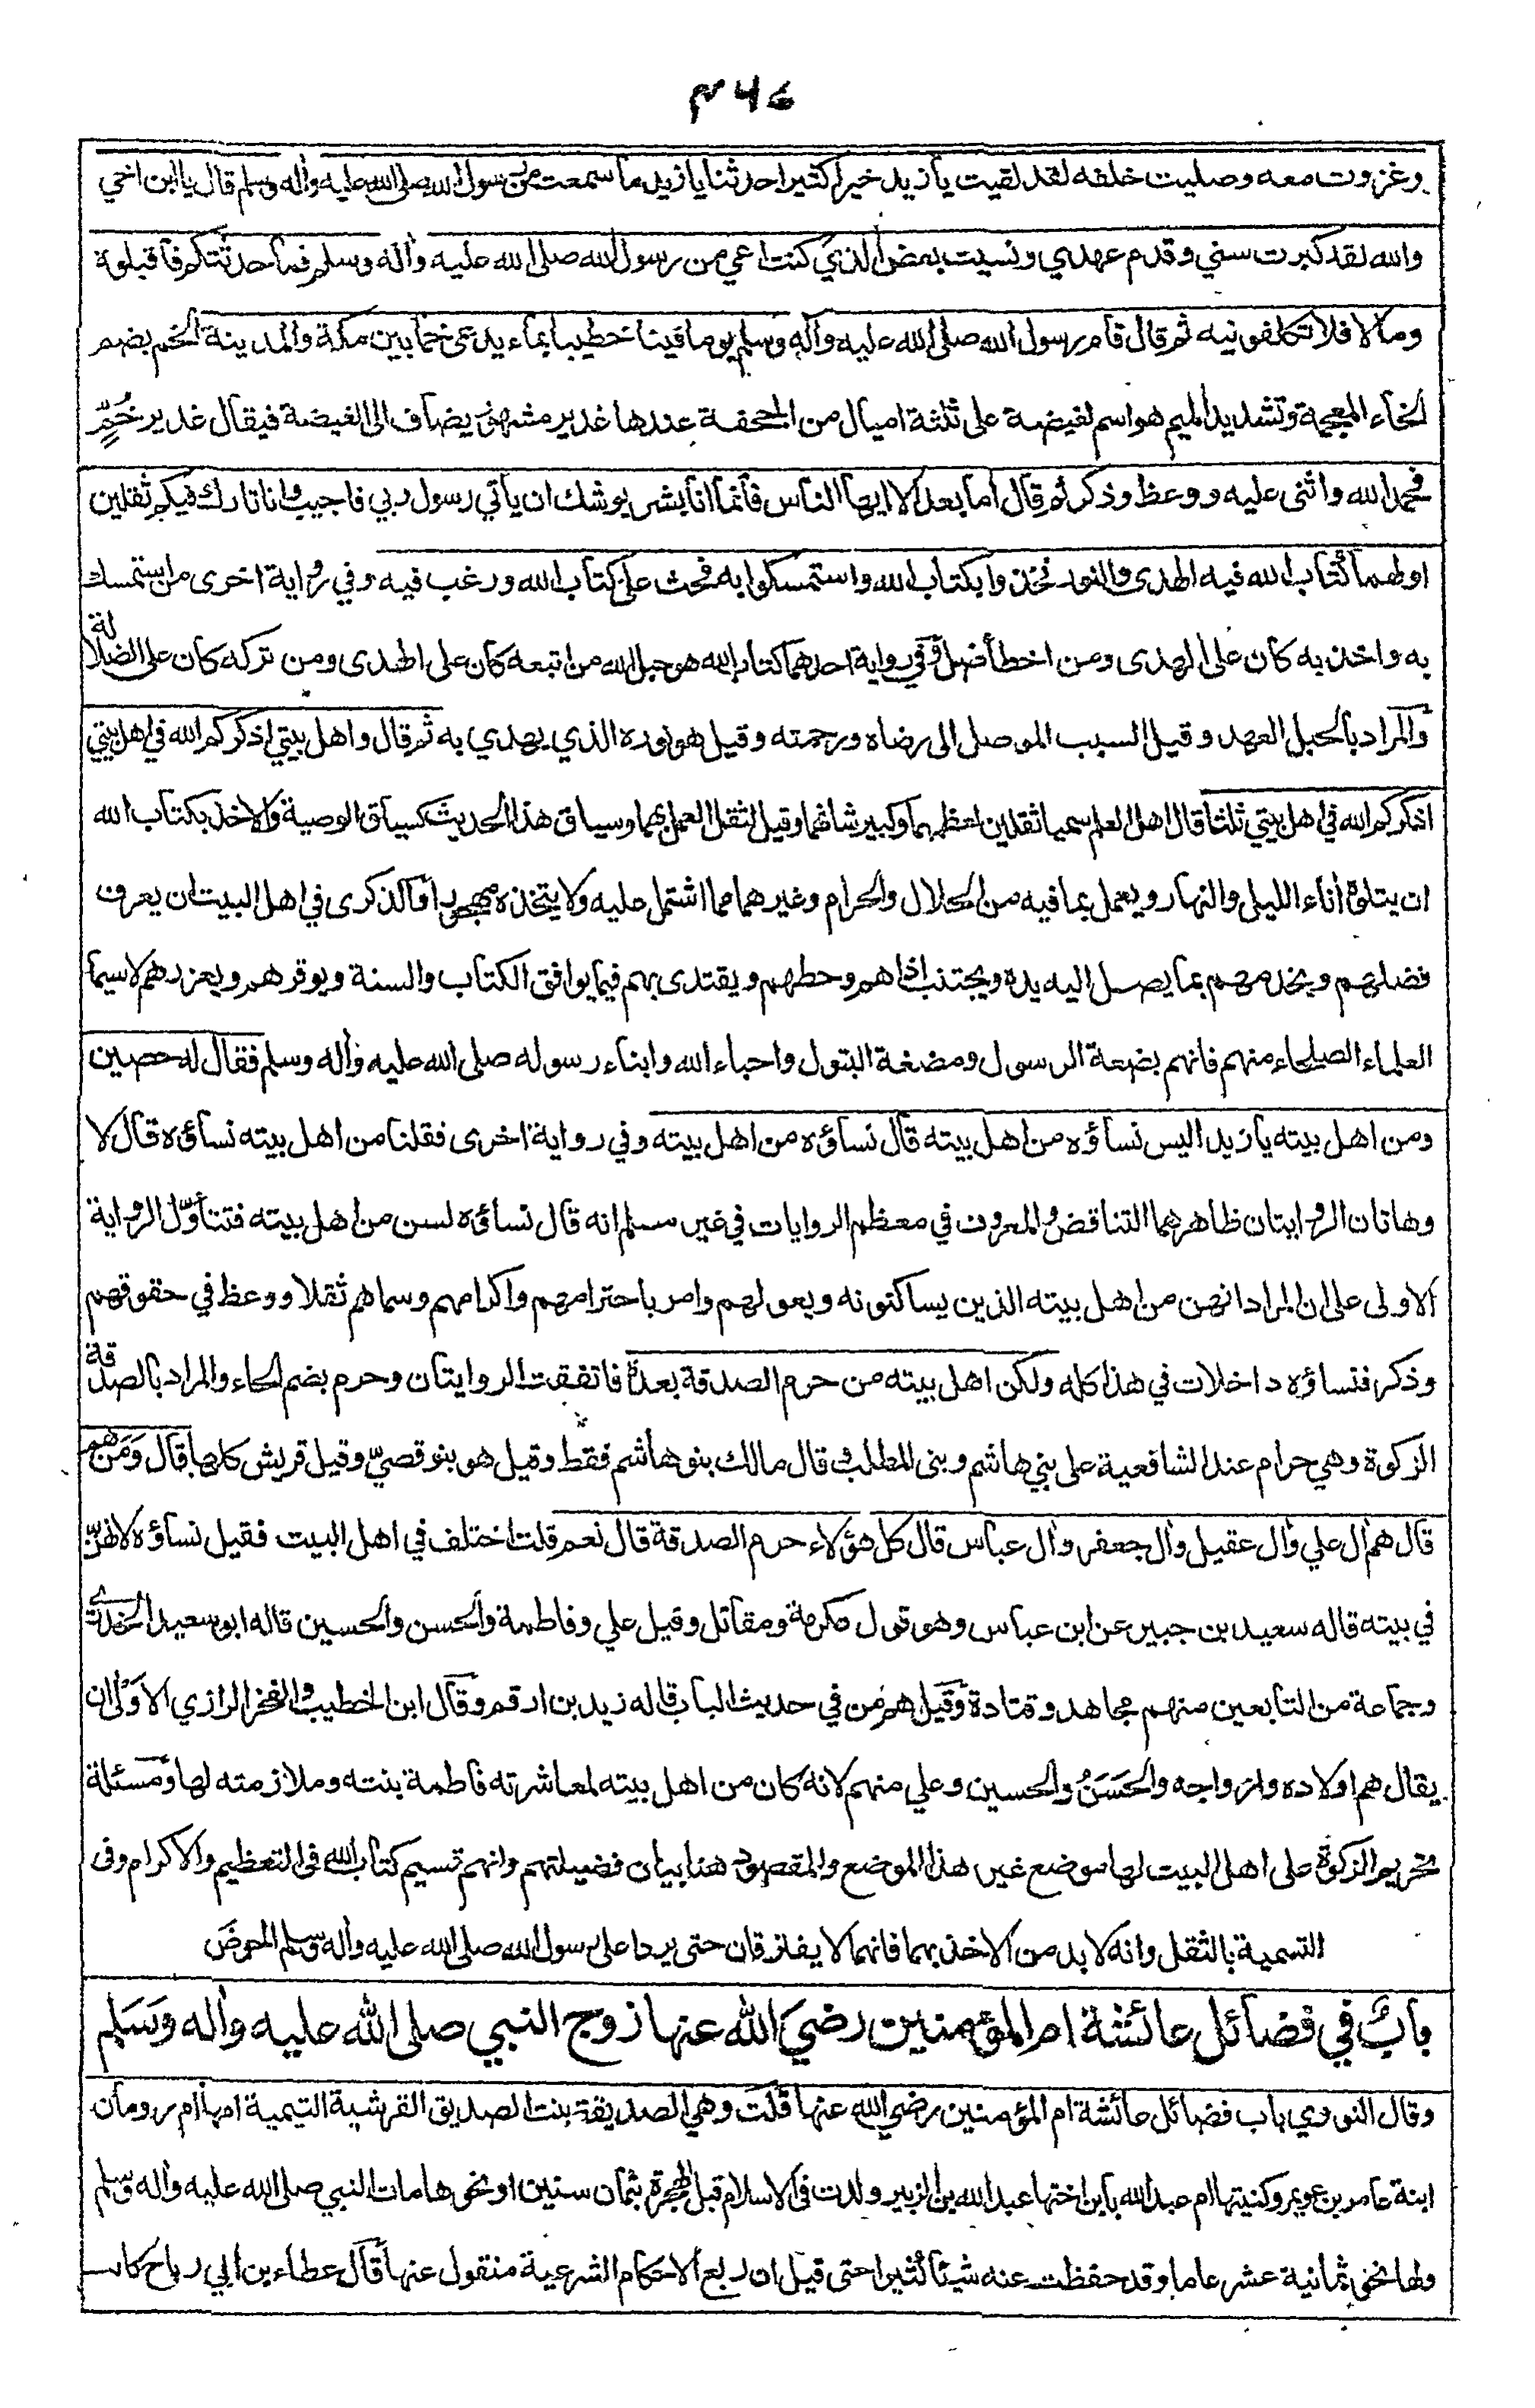 ٤٦٣
وغزوت معه وصليت خلفه لقد لقيت يا زيد خيرا كثيرا حدثنا يا زيد ما سمعت من رسول الله صلى الله عليه واٰله وسلم قال يا ابن اخي
والله لقد كبرت سني وقدم عهدي ونسيت بعض الذي كنت اعي من رسول الله صلى الله عليه واٰله وسلم فما حدثتكم فاقبلوه
وما لا فلا تكلفونيه ثم قال قام رسول الله صلى الله عليه واٰله وسلم يوما فينا خطيبا بماء يدعى خما بين مكة والمدينة الخم بضم
الخاء المعجمة وتشديد الميم هو اسم لغيضة على ثلثة اميال من الجحفة عندها غدير مشهور يضاف الى الغيضة فيقال غدير خُمٍّ
فحمد الله واثنى عليه ووعظ وذكر ثم قال اما بعد الا ايها الناس فانما انا بشر يوشك ان ياتي رسول ربي فاجيب وانا تارك فيكم ثقلين
اولهما كتاب الله فيه الهدى والنور فخذوا بكتاب الله واستمسكوا به فحث على كتاب الله ورغب فيه وفي رواية اخرى من استمسك
به واخذ به كان على الهدى ومن اخطأ ضل وفي رواية احدهما كتاب الله هو حبل الله من اتبعه كان على الهدى ومن تركه كان على الضلالة
والمراد بالحبل العهد وقيل السبب الموصل الى رضاه ورحمته وقيل هو نوره الذي يهدي به ثم قال واهل بيتي اذكركم الله في اهل بيتي
اذكركم الله في اهل بيتي ثلثا قال اهل العلم سميا ثقلين لعظمهما وكبير شانهما وقيل لثقل العمل بهما وسياق هذا الحديث كسياق الوصية والاخذ بكتاب الله
ان يتلوه اٰناء الليل والنهار ويعمل بما فيه من الحلال والحرام وغيرهما مما اشتمل عليه ولا يتخذه مهجورا والذكرى في اهل البيت ان يعرف
فضلهم ويخدمهم بما يصل اليه يده ويجتنب اذاهم وحطهم ويقتدى بهم فيما يوافق الكتاب والسنة ويوقرهم ويعزرهم لا سيما
العلماء الصلحاء منهم فانهم بضعة الرسول ومضغة البتول واحباء الله وابناء رسوله صلى الله عليه واٰله وسلم فقال له حصين
ومن اهل بيته يا زيد اليس نساؤه من اهل بيته قال نساؤه من اهل بيته وفي رواية اخرى فقلنا من اهل بيته نساؤه قال لا
وهاتان الروايتان ظاهرهما التناقض والمعروف في معظم الروايات في غير مسلم انه قال نساؤه لسن من اهل بيته فتتأول الرواية
الاولى على ان المراد انهن من اهل بيته الذين يساكنونه ويعولهم وامر باحترامهم واكرامهم وسماهم ثقلا ووعظ في حقوقهم
وذكر فنساؤه داخلات في هذا كله ولكن اهل بيته من حرم الصدقة بعده فاتفقت الروايتان وحرم بضم الحاء والمراد بالصدقة
الزكوة وهي حرام عند الشافعية على بني هاشم وبنى المطلب وقال مالك بنو هاشم فقط وقيل هو بنو قصيّ وقيل قريش كلها قال وَمَن هم
قال هم اٰل علي واٰل عقيل واٰل جعفر واٰل عباس قال كل هؤلاء حرم الصدقة قال نعم قلت اختلف في اهل البيت فقيل نساؤه لانهنّ
في بيته قاله سعيد بن جبير عن ابن عباس وهو قول عكرمة ومقاتل وقيل علي وفاطمة والحسن والحسين قاله ابو سعيد الخدري
وجماعة من التابعين منهم مجاهد وقتادة وقيل هم من في حديث الباب قاله زيد بن ارقم وقال ابن الخطيب والفخر الرازي الاولى ان
يقال هم اولاده وازواجه والحَسَنُ والحسين وعلي منهم لانه كان من اهل بيته لمعاشرته فاطمة بنته وملازمته لها ومسئلة
تحريم الزكوة على اهل البيت لها موضع غير هذا الموضع والمقصود هنا بيان فضيلتهم وانهم قسيم كتاب الله فى التعظيم والاكرام وفى
التسمية بالثقل وانه لا بد من الاخذ بهما فانهما لا يفترقان حتى يردا على رسول الله صلى الله عليه واٰله وسلم الحوضَ
بابٌ في فضائل عائشة ام المؤمنين رضيَ الله عنها زوج النبي صلى الله عليه واٰله وَسَلم
وقال النووي باب فضائل عائشة ام المؤمنين رضي الله عنها قلت وهي الصديقة بنت الصديق القرشية التيمية امها ام رومان
ابنة عامر بن عويمر وكنيتها ام عبد الله بابن اختها عبد الله بن الزبير ولدت فى الاسلام قبل الهجرة بثمان سنين او نحوها مات النبي صلى الله عليه واٰله وسلم
ولها نحو ثمانية عشر عاما وقد حفظت عنه شيئا كثيرا حتى قيل ان ربع الاحكام الشرعية منقول عنها قال عطاء بن ابي رباح كانت